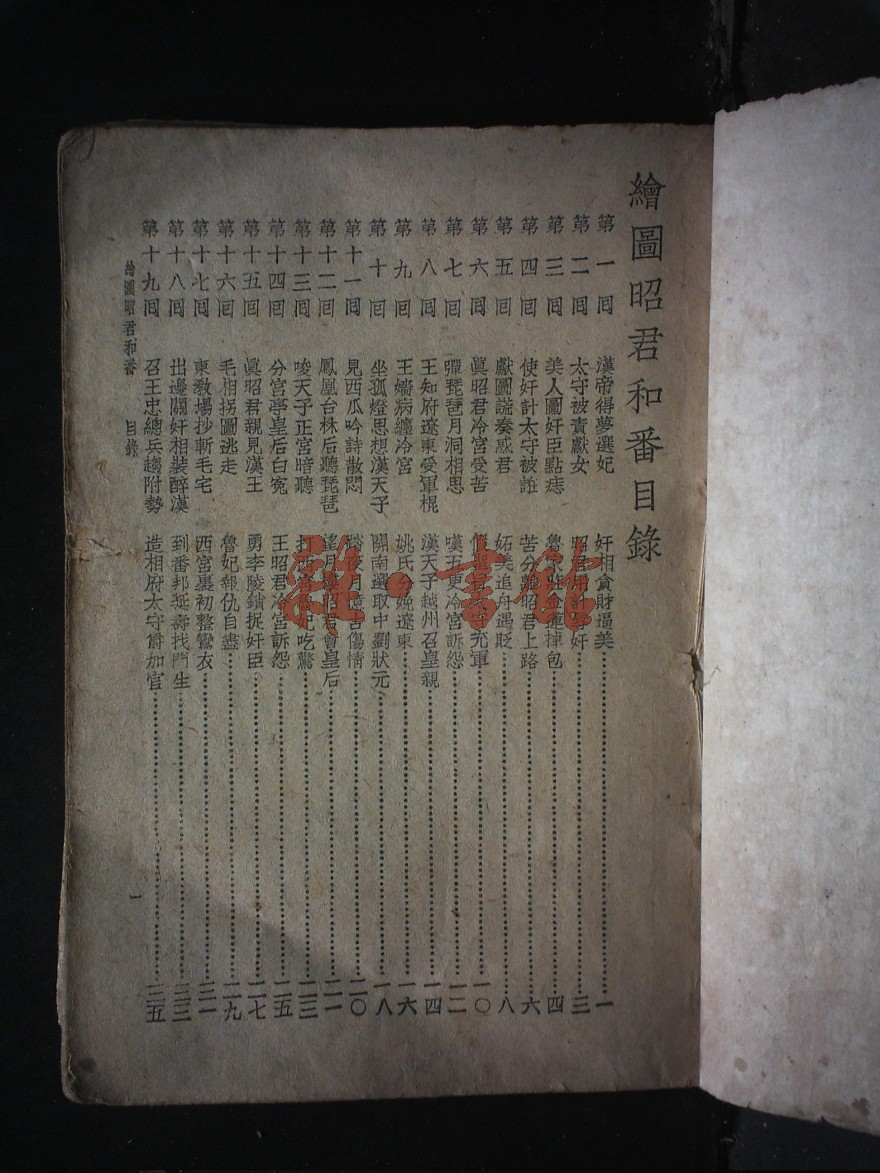 繪圖昭君和番目錄
第一囘 漢帝得夢選妃 奸相貪財逼美 一
第二囘 太守被責獻女 奸 三
第三囘 美人圖奸臣點痣 掉包 四
第四囘 使奸計太守被誑 苦分離昭君上路 六
第五囘 獻圖謊奏惑君 妬美追舟遇貶 八
第六囘 眞昭君冷宮受苦 充軍 一〇
第七囘 彈琵琶月洞相思 嘆五更冷宮訴怨 一二
第八囘 王知府遼東受軍棍 漢天子越州召皇親 一四
第九囘 王嬙病纏冷宮 姚氏分娩遼東 一六
第十囘 坐孤燈思想漢天子 開南選取中劉狀元 一八
第十一囘 見西瓜吟詩散悶 月憶古傷情 二〇
第十二囘 鳳凰台林后聽琵琶 望月樓昭君會皇后 二一
第十三囘 唆天子正宮暗聽 打西宮 妃吃驚 二三
第十四囘 分宮亭皇后白寃 王昭君冷宮訴怨 二五
第十五囘 眞昭君親見漢王 勇李陵鎖捉奸臣 二七
第十六囘 毛相拐圖逃走 魯妃報仇自盡 二九
第十七囘 東教場抄斬毛宅 西宮裏初整鸞衣 三一
第十八囘 出邊關奸相裝醉漢 到番邦延壽找門生 三三
第十九囘 召王忠總兵趨附勢 造相府太守爵加官 三五
繪圖昭君和番 目錄 一